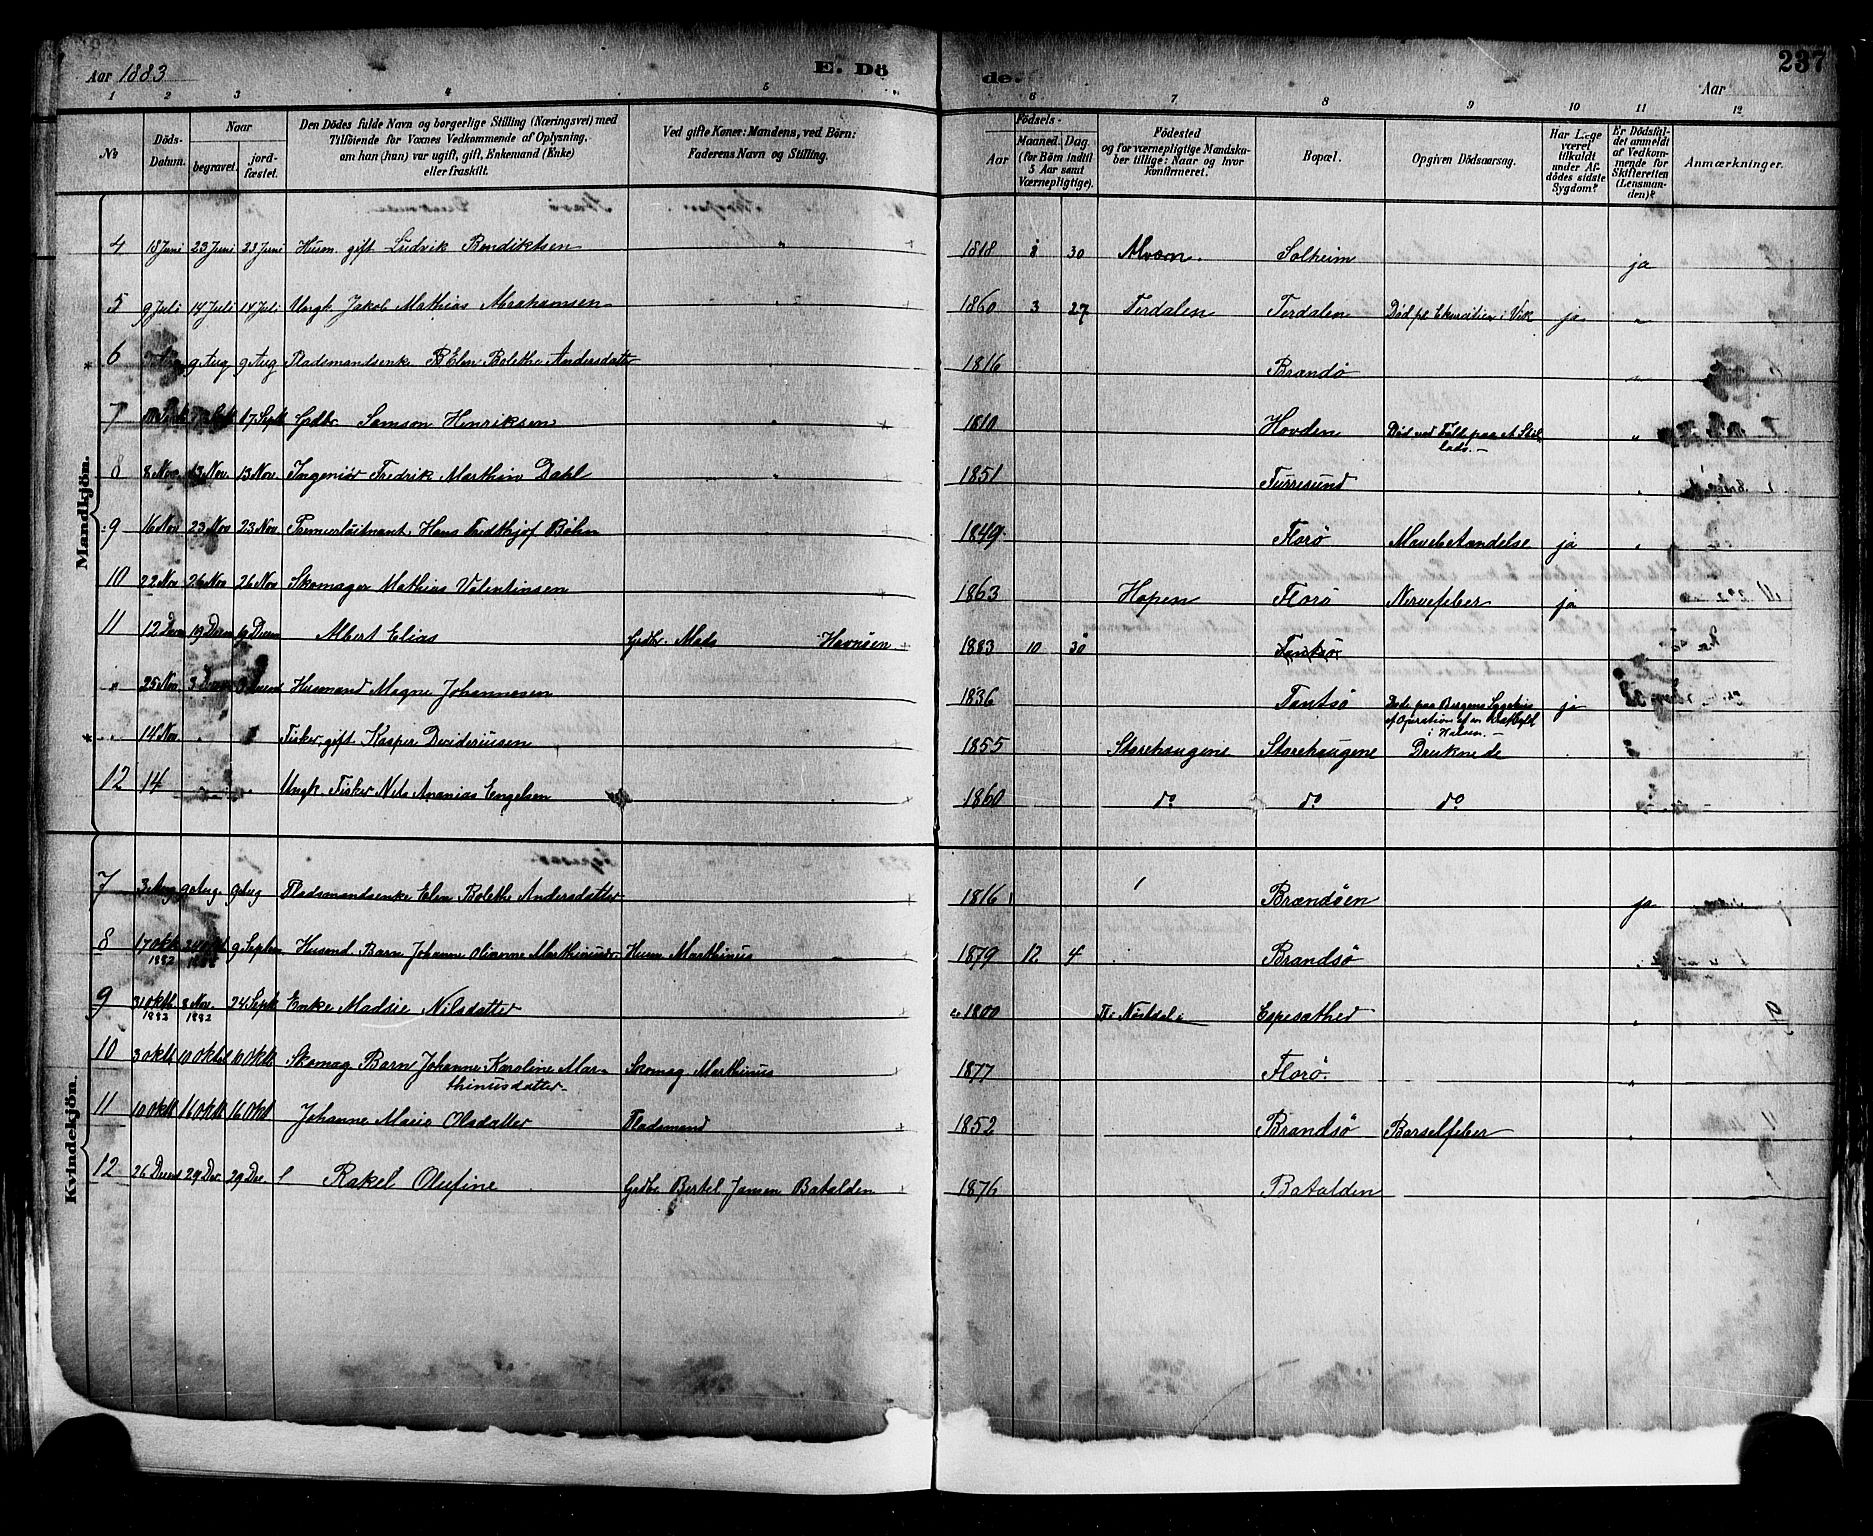 Aar 1883
E. Dö
de.
237
Aar
1 2 3 4 5 6 7 8 9 10 11 12
No
Döds-Datum.
Naar
begravet.
jord-fæstet.
Den Dödes fulde Navn og borgerlige Stilling (Næringsvei) med
Tilföiende for Voxnes Vedkommende af Oplysning,
om han (hun) var ugift, gift, Enkemand (Enke)
eller fraskilt.
Ved gifte Koner: Mandens, ved Börn:
Faderens Navn og Stilling.
Födsels-
Aar
Maaned. Dag.
(for Börn indtil
5 Aar samt
Værnepligtige).
Födested
og for værnepligtige Mandska-
ber tillige: Naar og hvor
konfirmeret.
Bopæl.
Opgiven Dödsaarsag.
Har Læge
været
tilkaldt
under Af-
dödes sidste
Sygdom?
Er Dödsfal-
det anmeldt
af Vedkom-
mende for
Skifteretten
(Lensman-
den)?
Anmærkninger.
Mandkjön.
4 18 Juni 23 Juni 23 Juni Husm. gift Ludvik Bendiktsen " 1818 8 30 Solheim ja
5 9 Juli 14 Juli 14 Juli Ungk. Jakob Mathias Abrahamsen 1860 3 27 Terdalen Terdalen Död i Vik ja "
6 9 Aug 9 Aug Pladsmandsenke Elen Bolethe Andersdatter 1816 Brandsö "
7 17 Sept Grdbr. Samson Henriksen 1810 Hovden Död ved Fald paa et Stil-
lads. "
8 8 Nov 13 Nov 13 Nov Ingeniör Fredrik Marthin Dahl 1851 Furresund "
9 16 Nov 23 Nov 23 Nov Hans Fridthjof Böhn 1849 Florö ja "
10 22 Nov 26 Nov 26 Nov Skomager Mathias Valentinsen 1863 Hopen Florö Nervefeber ja
11 12 Decm 19 Decm 19 Decm Albert Elias Grdbr. Mads 1883 10 30 Fantsö
" 25 Nov 3 Decm Husmand Magne Johannesen 1836 Fantsö Döde paa Bergens Sygehus
af Operation af en
i Halsen. ja
" 14 Nov Fisker, gift Kasper Desideriussen 1855 Storehaugene Storehaugene Druknede
12 14 Ungk. Fisker Nils Ananias Engelsen 1860 do do do
Kvindekjön.
7 3 Aug 9 Aug. 9 Aug Pladsmandsenke Elen Bolethe Andersdatter 1816 Brandsöen ja
8 17 Oktb 1882 24 Oktb 1882 9 Septem Husmd. Barn Johanne Olianne Marthinusdr Husm Marthinus 1879 12 4 Brandsö "
9 31 Oktb 1882 8 Nov. 1882 24 Septb Enke Madsie Nilsdatter 1800 "
10 3 Oktb 10 Oktb 10 Oktb. Skomag Barn Johanne Karoline Mar-
thinusdatter Skomag Marthinus 1877 Florö. "
11 10 Oktb 16 Oktb 16 Oktb Johanne Marie Olsdatter Pladsmand 1852 Brandsö Barselfeber "
12 26 Decm 29 Dec. 29 Dec. Rakel Olufine Grdbr Bertel Jansen Batalden 1876 Batalden